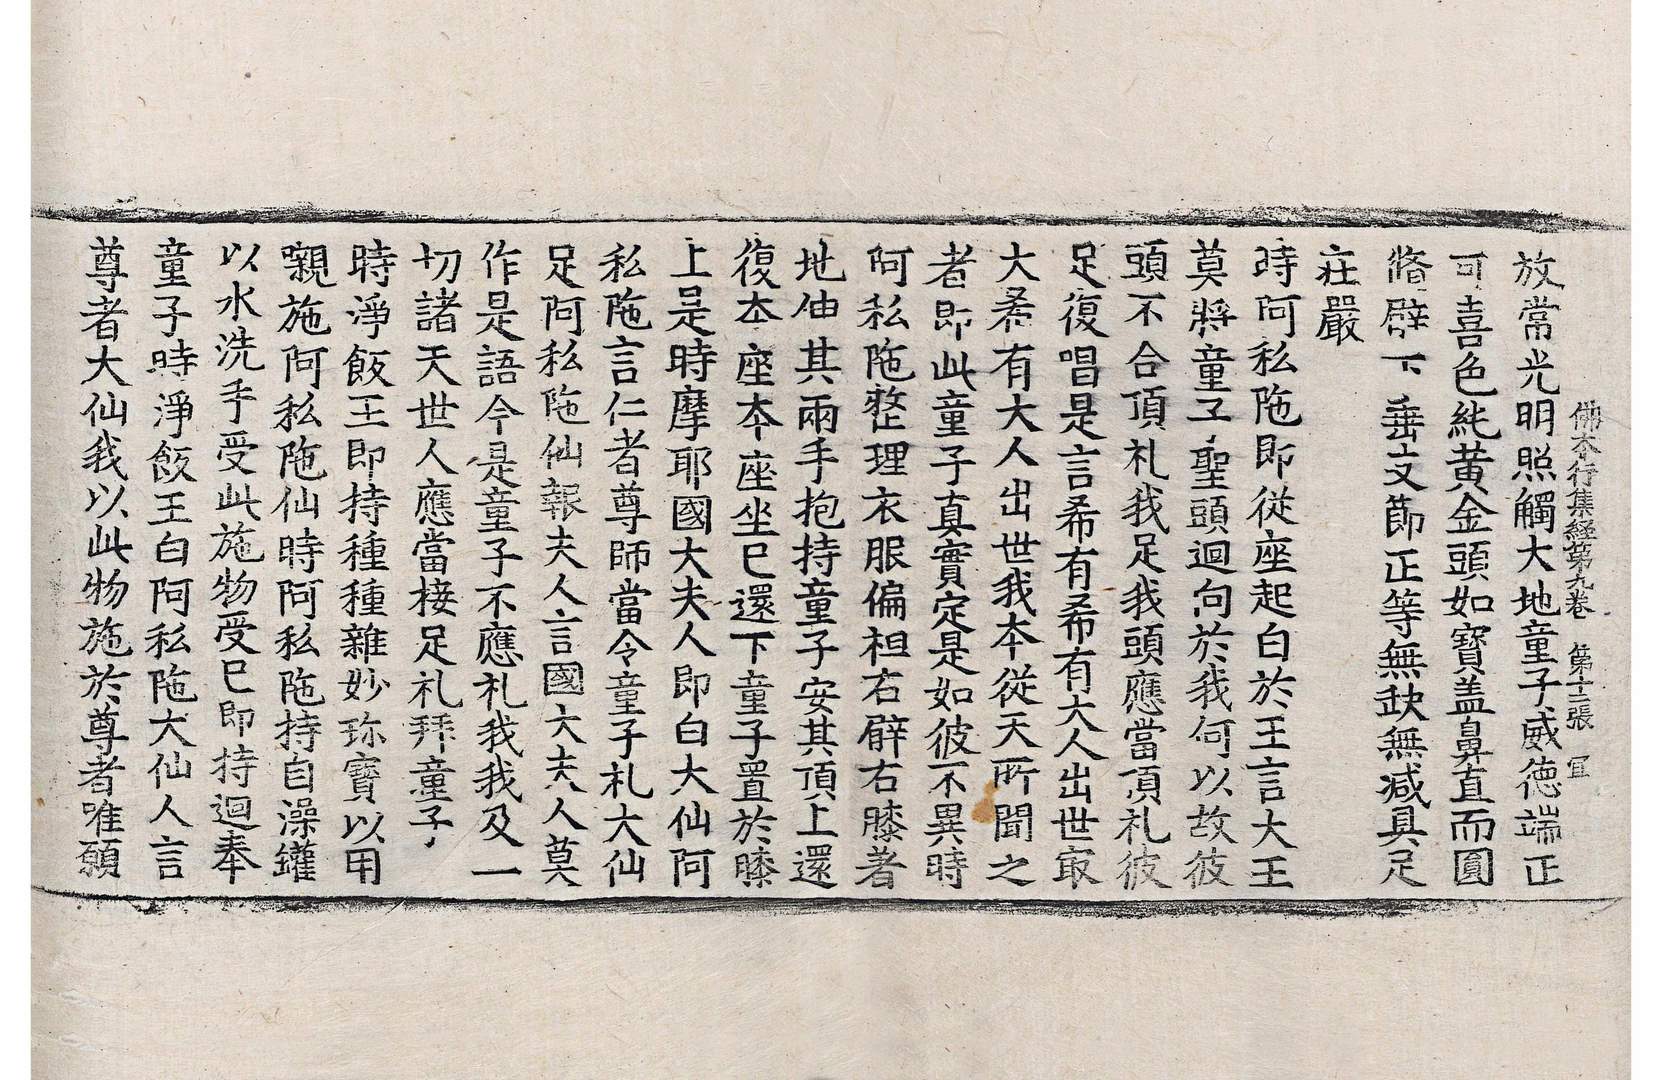 佛本行集経第九卷　第十二張　宜
放常光明照觸大地童子威德端正
可喜色純黃金頭如寶盖鼻直而圓
脩臂下垂支節正等無缺無减具足
庄嚴
時阿私陁即從座起白於王言大王
莫將童子聖頭迴向於我何以故彼
頭不合頂礼我足我頭應當頂礼彼
足復唱是言希有希有大人出世㝡
大希有大人出世我本從天所聞之
者即此童子真實定是如彼不異時
阿私陁整理衣服偏袒右臂右膝著
地伸其兩手抱持童子安其頂上還
復本座本座坐已還下童子置於膝
上是時摩耶國大夫人即白大仙阿
私陁言仁者尊師當令童子礼大仙
足阿私陁仙報夫人言國大夫人莫
作是語今是童子不應礼我我及一
切諸天世人應當接足礼拜童子
時淨飯王即持種種雜妙珎寶以用
嚫施阿私陁仙時阿私陁持自澡罐
以水洗手受此施物受已即持迴奉
童子時淨飯王白阿私陁大仙人言
尊者大仙我以此物施於尊者唯願